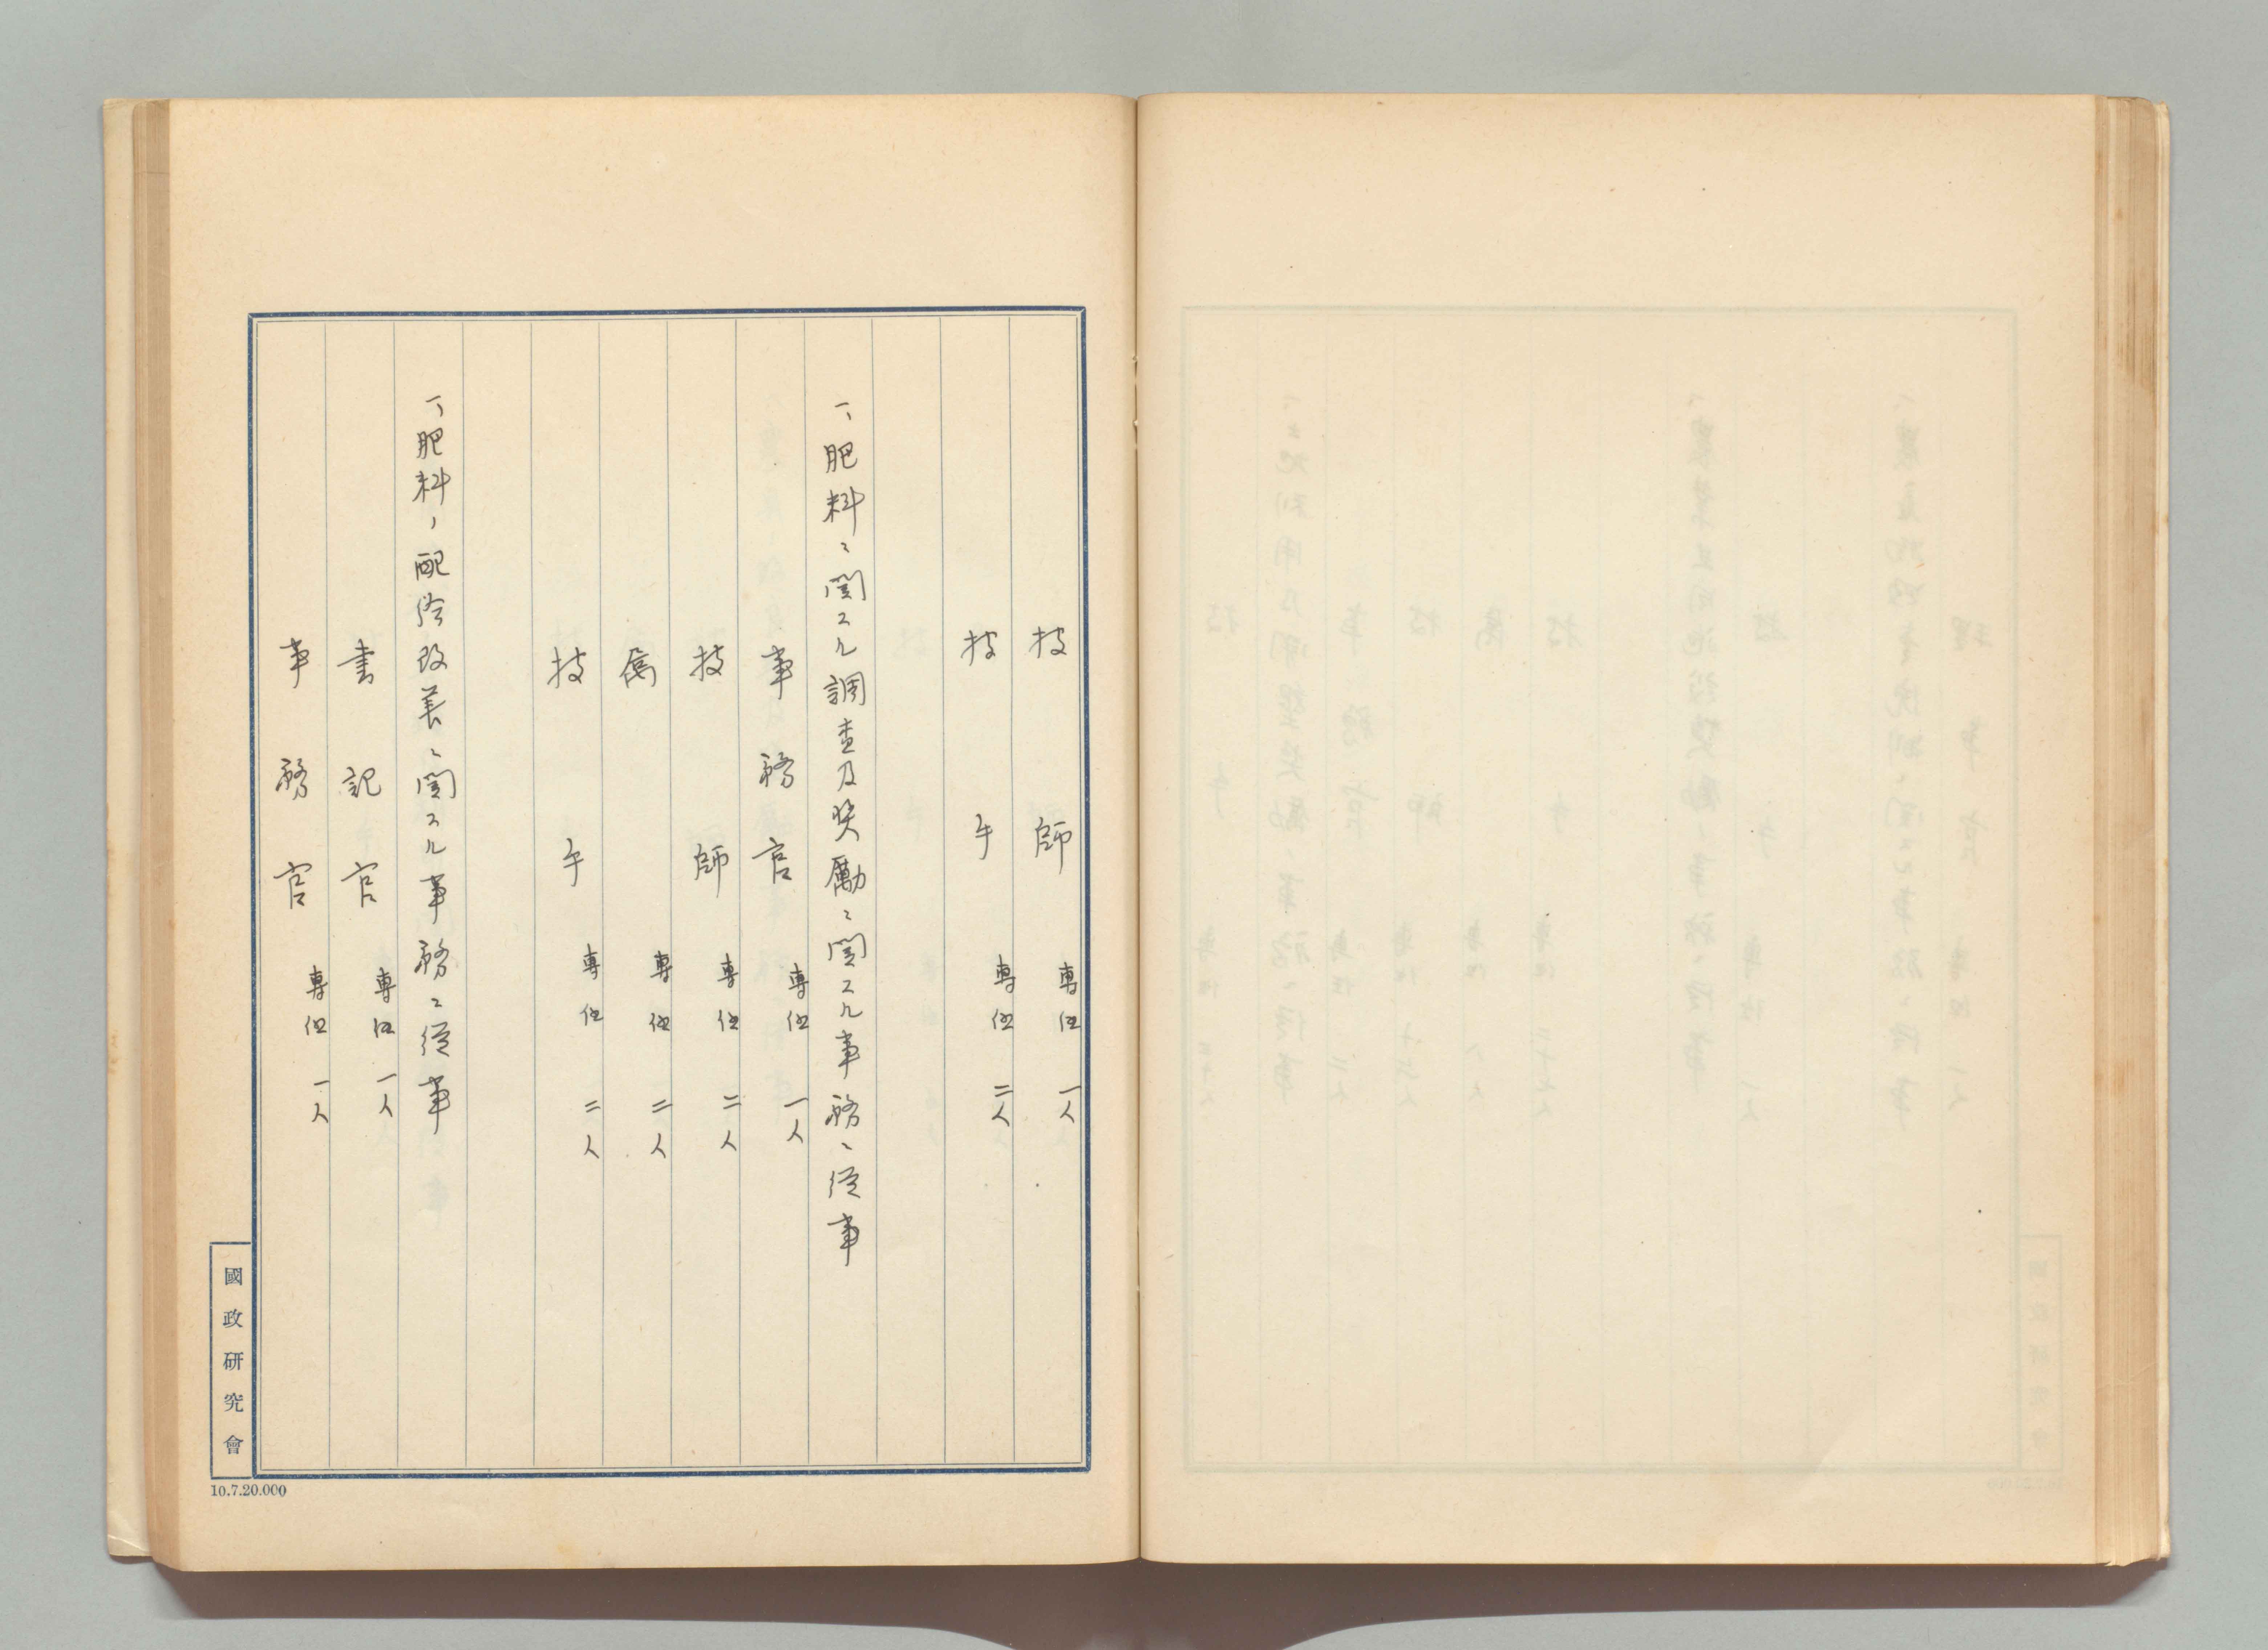 技師 専任 一人
技手 専任 二人
一、肥料ニ関スル調査及奨励ニ関スル事務ニ従事
事務官 専任 一人
技師 専任 二人
属 専任 二人
技手 専任 二人
一、肥料ノ配給改善ニ関スル事務ニ従事
書記官 専任 一人
事務官 専任 一人
國政研究會
10.7.20.000